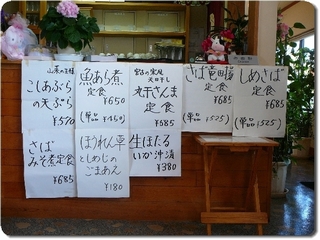 山菜の王様
こしあぶら
の天ぷら
¥570
魚あら煮
定食
¥650
(単品¥450)
宮古の実風
天日干し
丸干さんま
定食
¥685
さば竜田揚
定食
¥685
(単品¥525)
しめさば
定食
¥685
(単品¥525)
さば
みそ煮定食
¥685
ほうれん草
としめじの
ごまあえ
¥180
生ほたる
いか沖漬
¥380